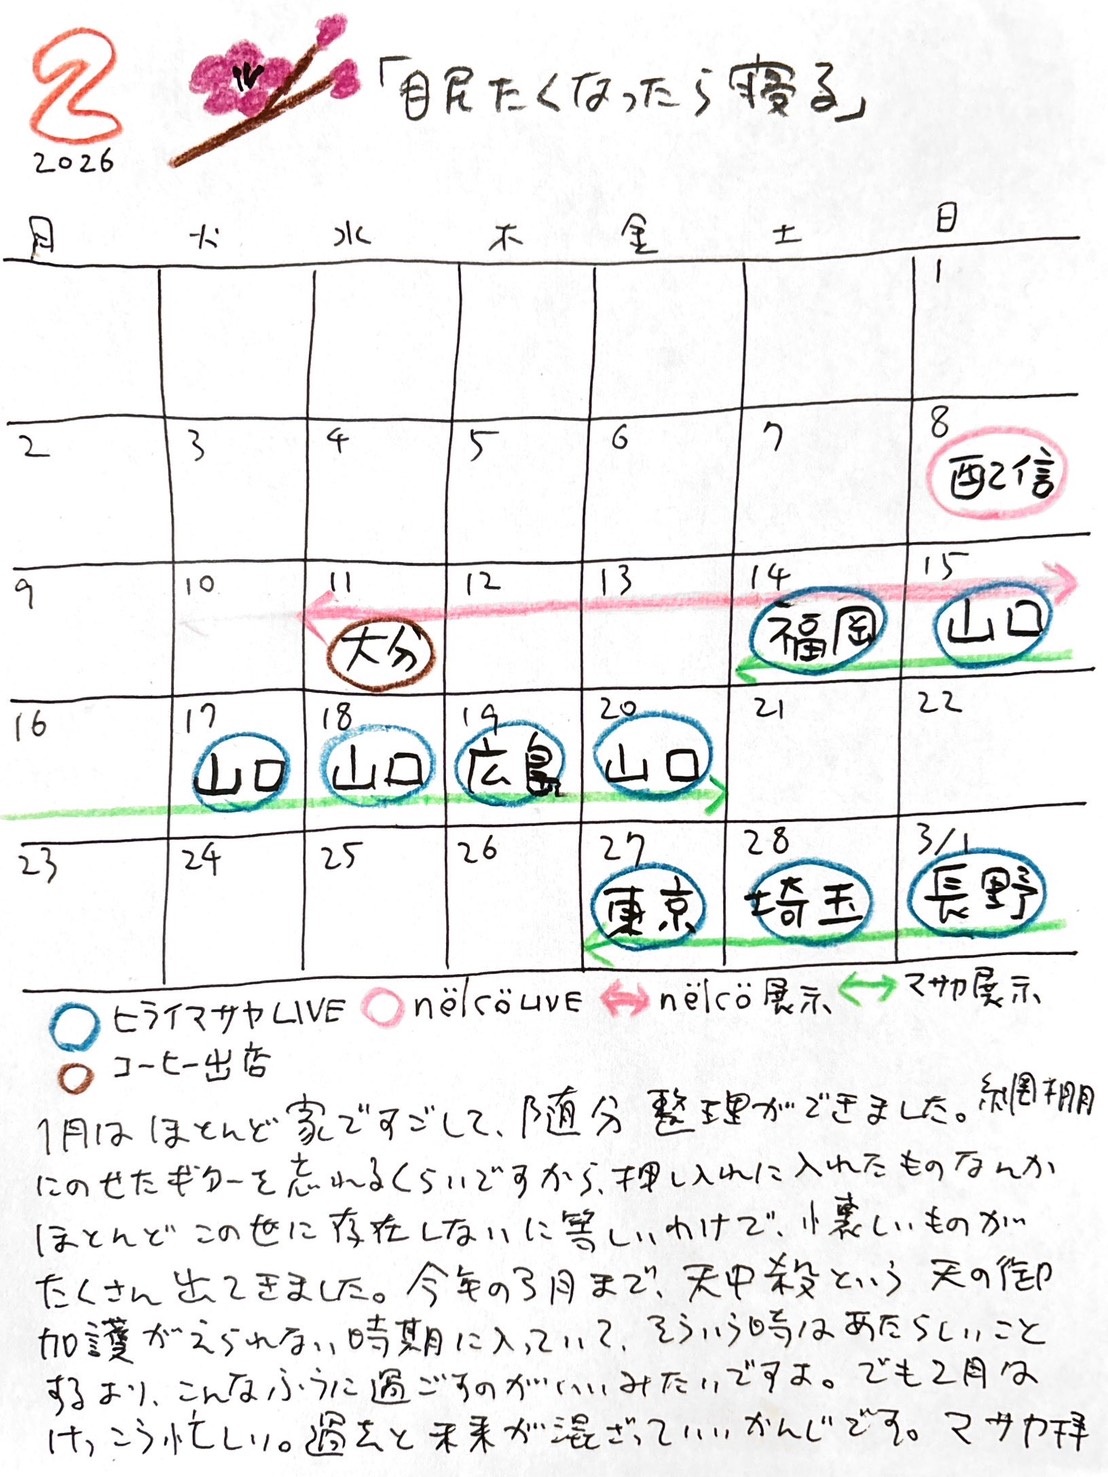 2
2026
「眠たくなったら寝る」
月 火 水 木 金 土 日
1
2 3 4 5 6 7 8
配信
9 10 11 12 13 14 15
大分 福岡 山口
16 17 18 19 20 21 22
山口 山口 広島 山口
23 24 25 26 27 28 3/1
東京 埼玉 長野
ヒライマサヤLIVE nëlcöLIVE nëlcö展示 マサヤ展示
コーヒー出店
1月はほとんど家ですごして、随分整理ができました。網棚
にのせたギターを忘れるくらいですから、押し入れに入れたものなんか
ほとんどこの世に存在しないに等しいわけで、懐しいものが
たくさん出てきました。今年の3月まで、天中殺という天の御
加護がえられない時期に入っていて、そういう時はあたらしいこと
するより、こんなふうに過ごすのがいいみたいですよ。でも2月は
けっこう忙しい。過去と未来が混ざっていいかんじです。マサヤ拝